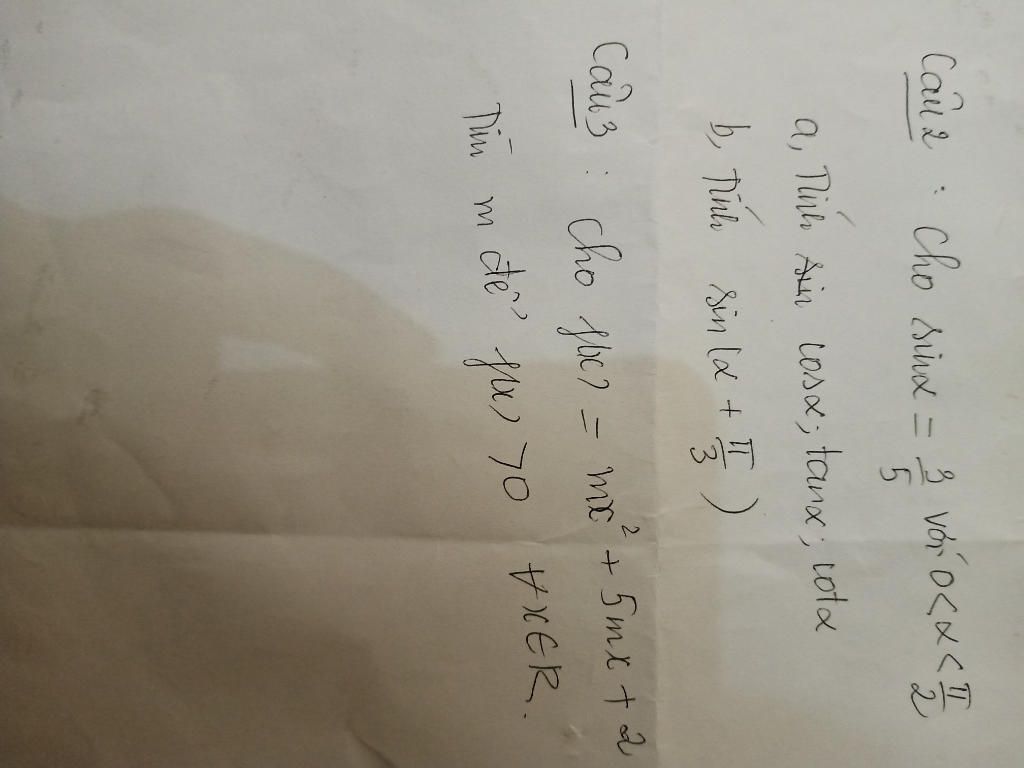 Câu 2 : Cho sinα = 3/5 với 0 < α < π/2
a, Tính sin cosα; tanα; cotα
b, Tính sin(α + π/3)
Câu 3 : Cho f(x) = mx² + 5mx + 2
Tìm m để f(x) > 0 ∀x∈R.